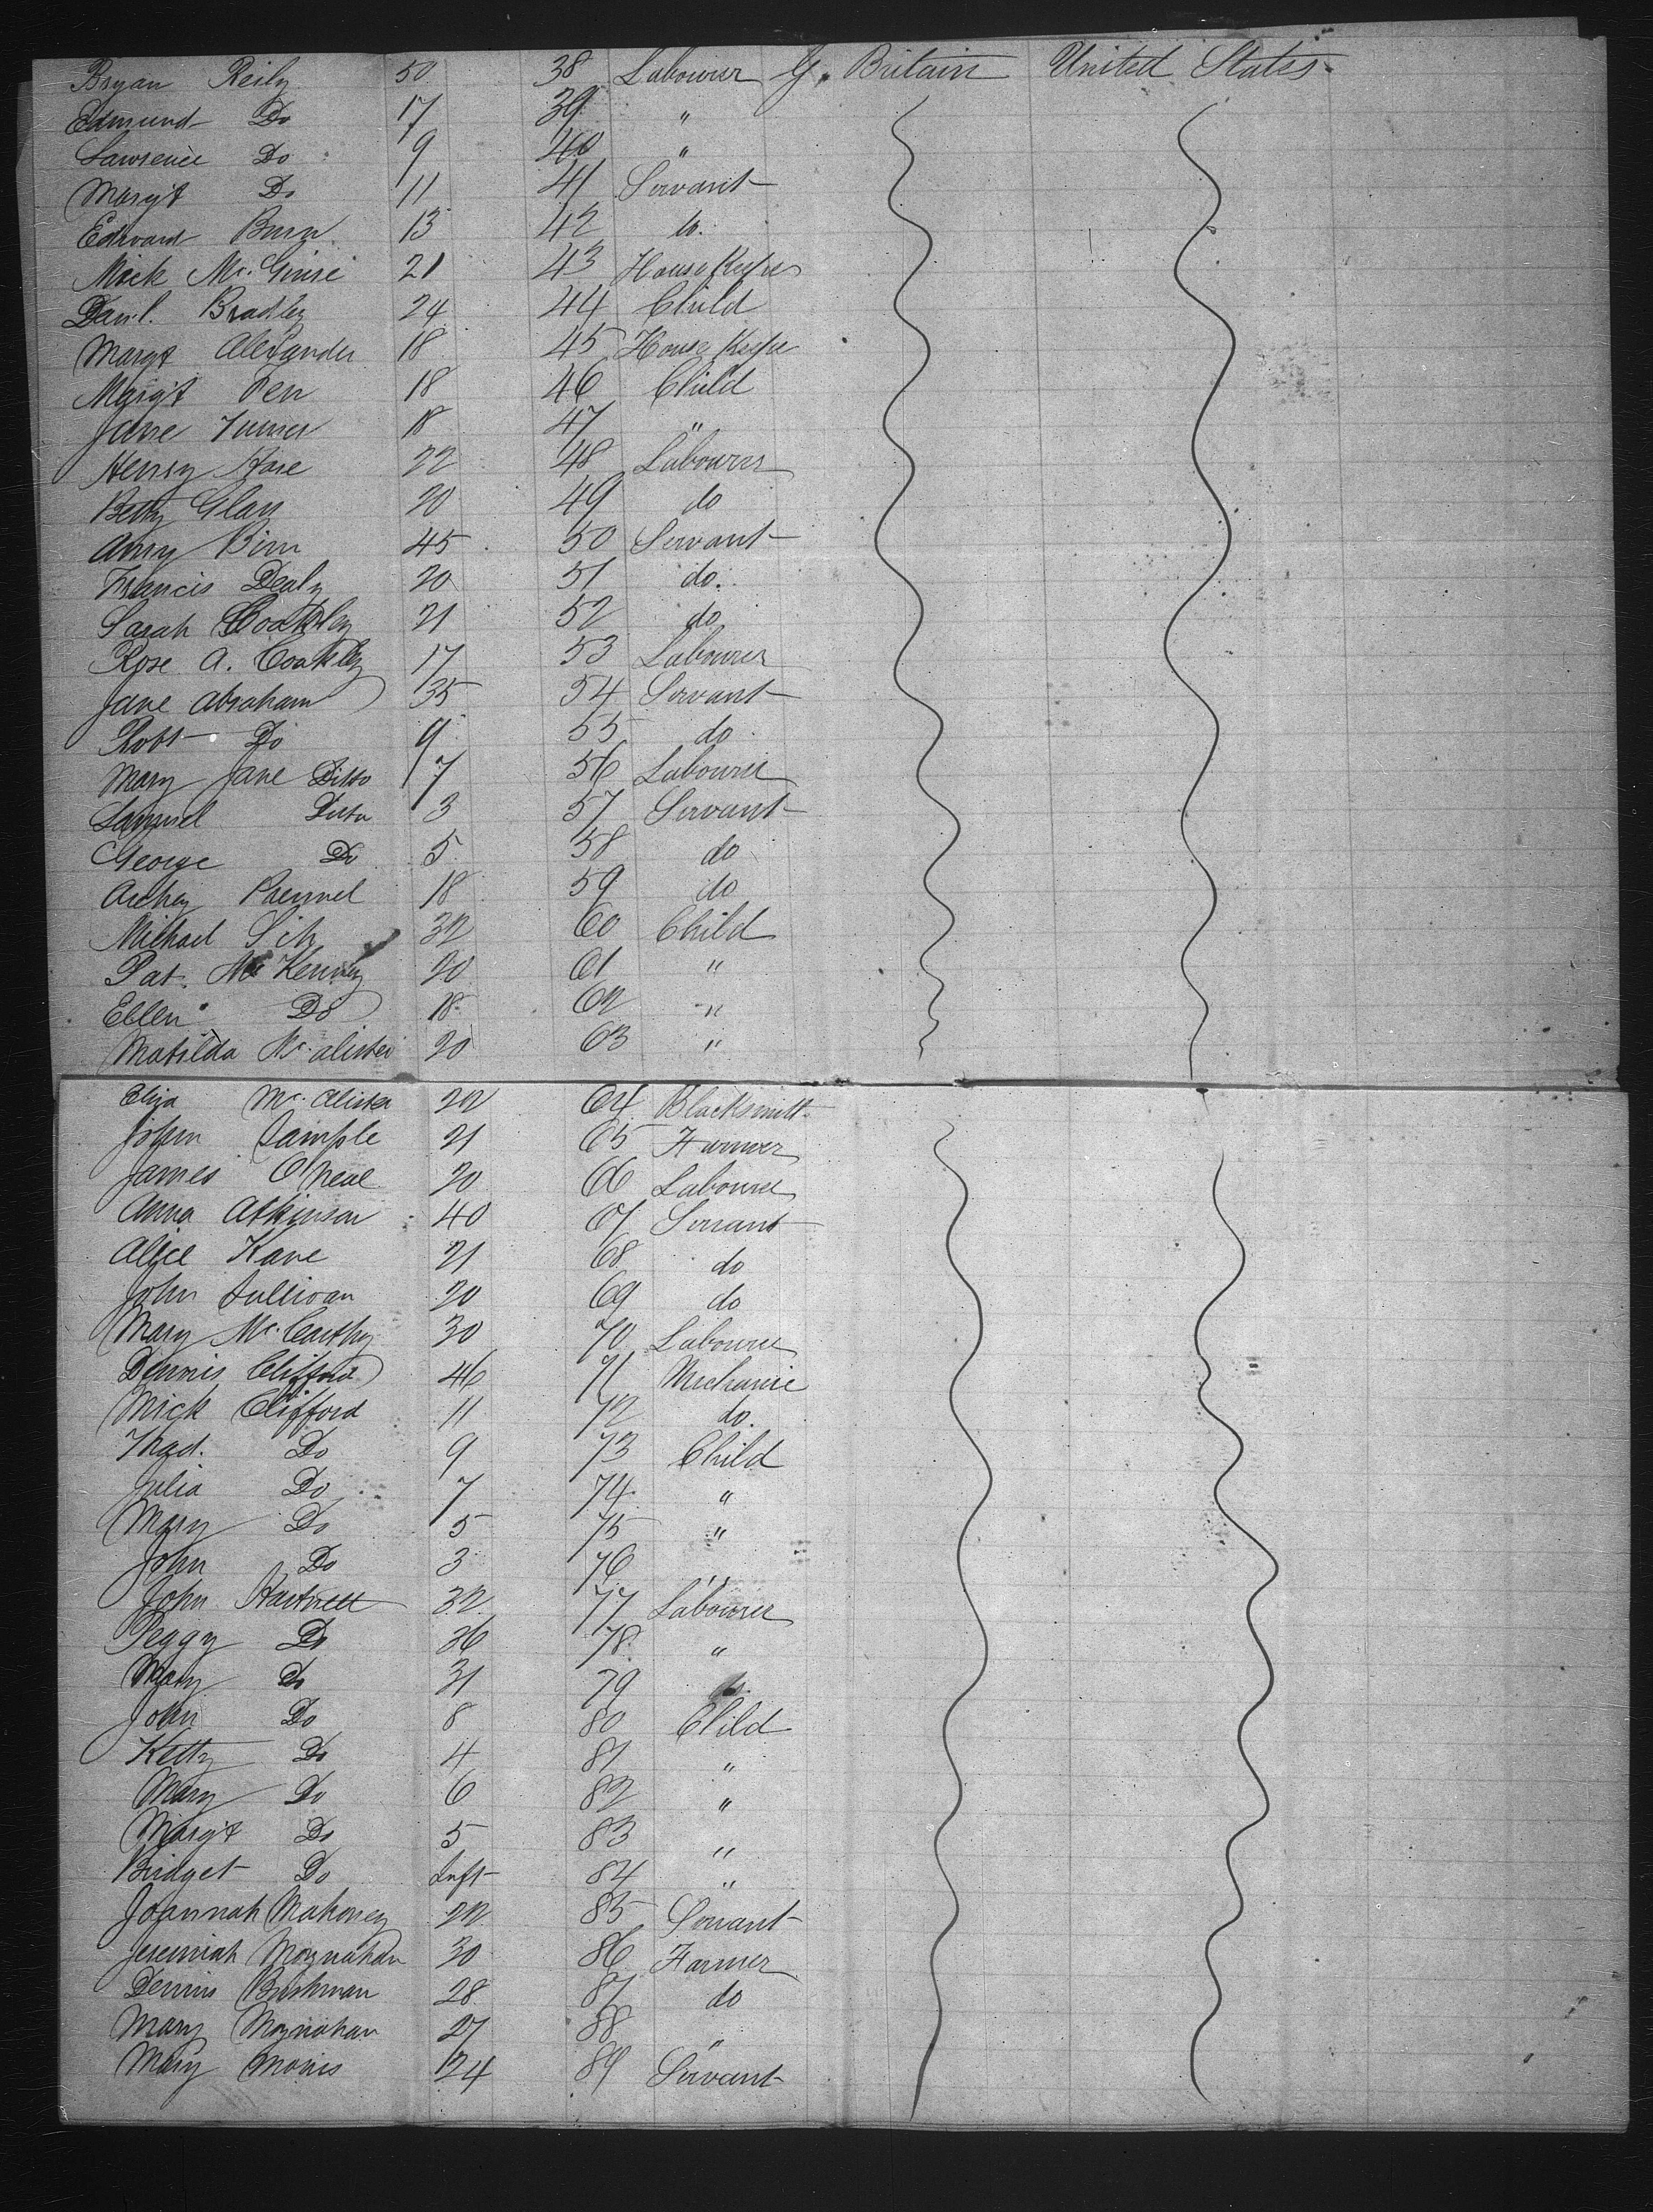 Bryan Reily 50 38 Labourer G. Britain United States
Edmund Do 17 39 "
Lawrence Do 9 40 "
Margt Do 11 41 Servant
Edward Burn 13 42 do.
Mick Mc. Ginise 21 43 House Keeper
Danl. Bradley 24 44 Child
Margt Allexander 18 45 House Keeper
Margt Pen 18 46 Child
Jane Turner 18 47 "
Henry Hare 22 48 Labourer
Betty Glass 20 49 do
Anny Birn 45 50 Servant
Francis Dealy 20 51 do.
Sarah Coakley 21 52 do
Rose A. Coakley 17 53 Labourer
Jane Abraham 35 54 Servant
Robt Do 9 55 do
Mary Jane Ditto 7 56 Labourer
Samuel Ditto 3 57 Servant
George Do 5 58 do
Archey 18 59 do
Michael 32 60 Child
Pat. Mc Kenney 20 61 "
Ellen Do 18 62 "
Matilda Mc. alister 20 63 "
Eliza Mc. Alister 22 64 Blacksmith
John Sample 21 65 Farmer
James O neal 20 66 Labourer
Anna Atkinson 40 67 Servant
Alice Kane 21 68 do
John Sullivan 20 69 do
Mary Mc. Carthy 30 70 Labourer
Dennis Clifford 46 71 Mechanic
Mick Clifford 11 72 do.
Do 9 73 Child
Julia Do 7 74 "
Mary Do 5 75 "
John Do 3 76 "
John Hartnett 32 77 Labourer
Peggy Do 36 78 "
Mary Do 31 79
John Do 8 80 Child
Ketty Do 4 81 "
Mary Do 6 82 "
Margt Do 5 83 "
Bridget Do Inft 84 "
Joannah Mahoney 22 85 Servant
Jeremiah Moynahan 30 86 Farmer
Dennis Bushman 28 87 do
Mary Moynahan 27 88 "
Mary Monis 24 89 Servant